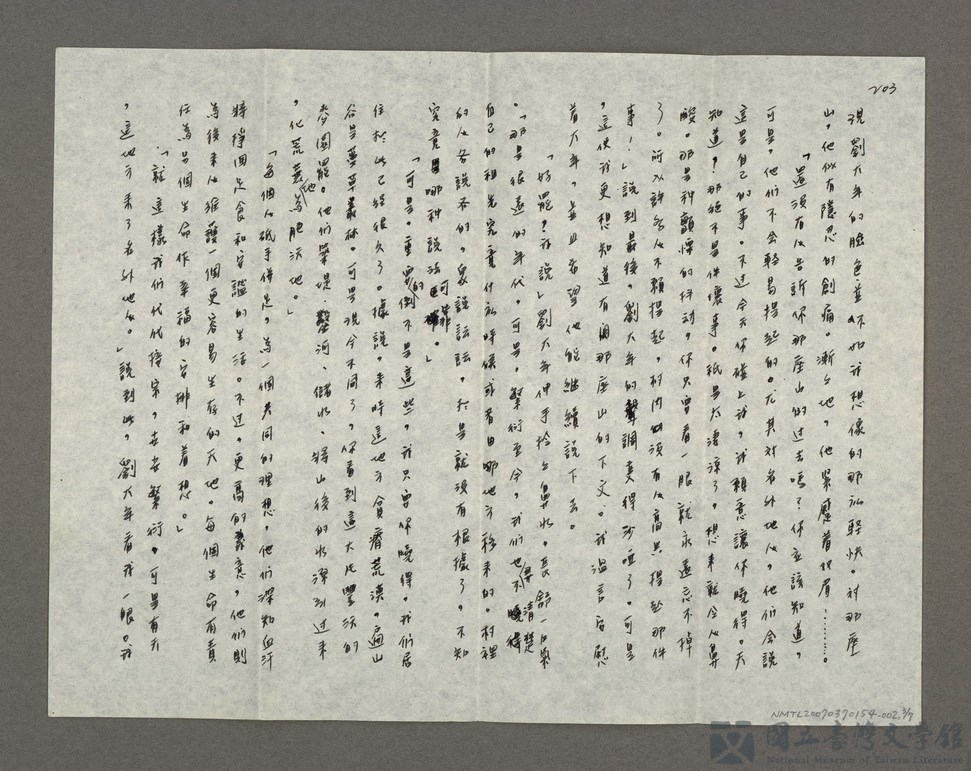 203
現劉大年的臉色並不如我想像的那麼輕快。對那座
山，他似有隱忍的創痛。漸漸地，他緊蹙着雙眉………。
「還沒有人告訴你那座山的過去嗎？你應該知道，
可是，他們不會輕易提起的。尤其對外地人，他們會說
這是自己的事。不過今天你碰上我，我願意讓你曉得。天
知道，那絕不是件壞事。祇是太淒涼了，想來就令人鼻
酸。那是種顫慄的抖動，你只要看一眼，就永遠忘不掉
了。所以許多人不願提起，村內必須有人高興提起那件
事！」說到最後，劉大年的聲調變得沙啞了。可是
，這使我更想知道有關那座山的下文。我溫言安慰
着大年，並且希望他能繼續說下去。
「好罷？我說」劉大年伸手拾去鼻水，長舒一口氣
。「那是很遠的年代，可是，繁衍至今，我們也不曉得清楚
自己的祖先究竟什麼時候或者由哪地方移來的。村裡
的人各說各的，衆說紜紜，於是就沒有根據了，不知
究竟哪種說法可靠。」
「可是。重要的倒不是這些，我只要你曉得。我們居
住於此已經很久了。據說，來時這地方貧瘠荒漠。遍山
谷是蔓草叢林。可是現今不同了，你看到這大片豐沃的
麥園罷。他們築堤、鑿河、儲水、將山後的水源引過來
，化荒蕪為肥沃地。」
「每個人砥手併足，為一個共同的理想，他們深知血汗
將換回足食和安謐的生活。不過，更高的意思，他們則
為後來人維護一個更容易生存的天地。每個生命有責
任為另個生命作幸福的安排和着想。」
「就這樣我們代代接家，在安繁衍。可是有天
，這地方來了名外地人。」說到此，劉大年看我一眼。我
NMTL20070370154-002, 3/7
國立臺灣文學館
National Museum of Taiwan Literature